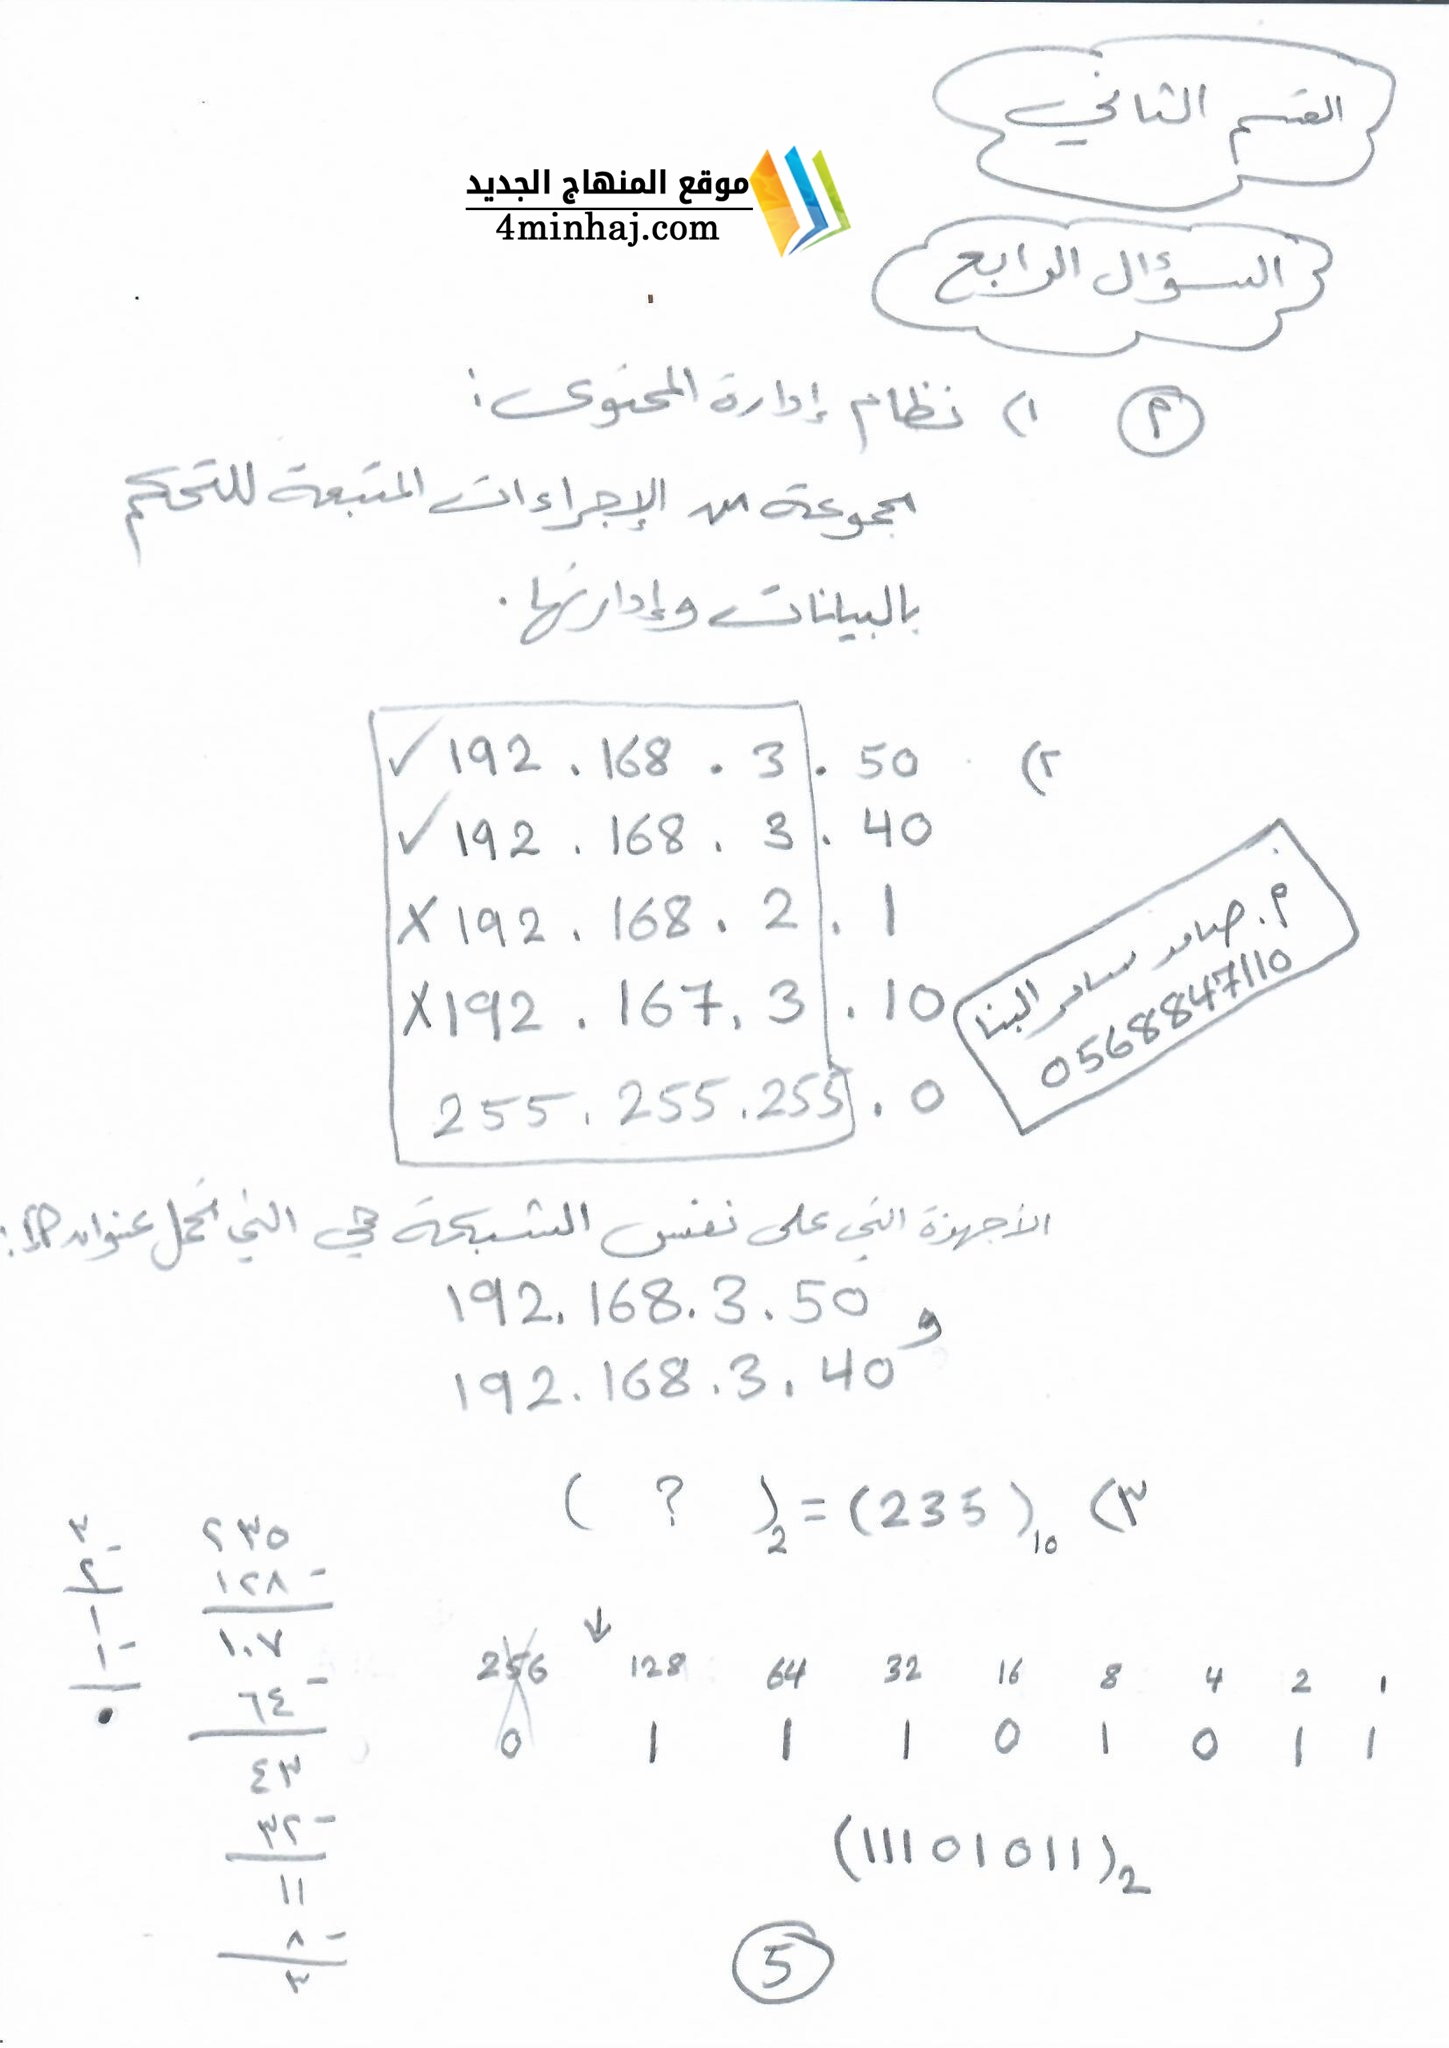 القسم الثاني
موقع المنهاج الجديد
4minhaj.com
السؤال الرابع
٢ ١) نظام إدارة المحتوى:
مجموعة من الإجراءات المتبعة للتحكم
بالبيانات وإدارتها.
٢)
✓ 192 . 168 . 3 . 50
✓ 192 . 168 . 3 . 40
X 192 . 168 . 2 . 1
X 192 . 167 . 3 . 10
255 . 255 . 255 . 0
م. صامد سامر البنا
0568847110
الأجهزة التي على نفس الشبكة هي التي تحمل عنوان IP:
192.168.3.50
و
192.168.3.40
٣) ( ? )2 = (235)10
256 ↓ 128 64 32 16 8 4 2 1
0 1 1 1 0 1 0 1 1
(11101011)2
٢٣٥
١٢٨ -
١٠٧
٦٤ -
٤٣
٣٢ -
١١
٨ -
٣
٣
٢ -
١
١ -
٠
5